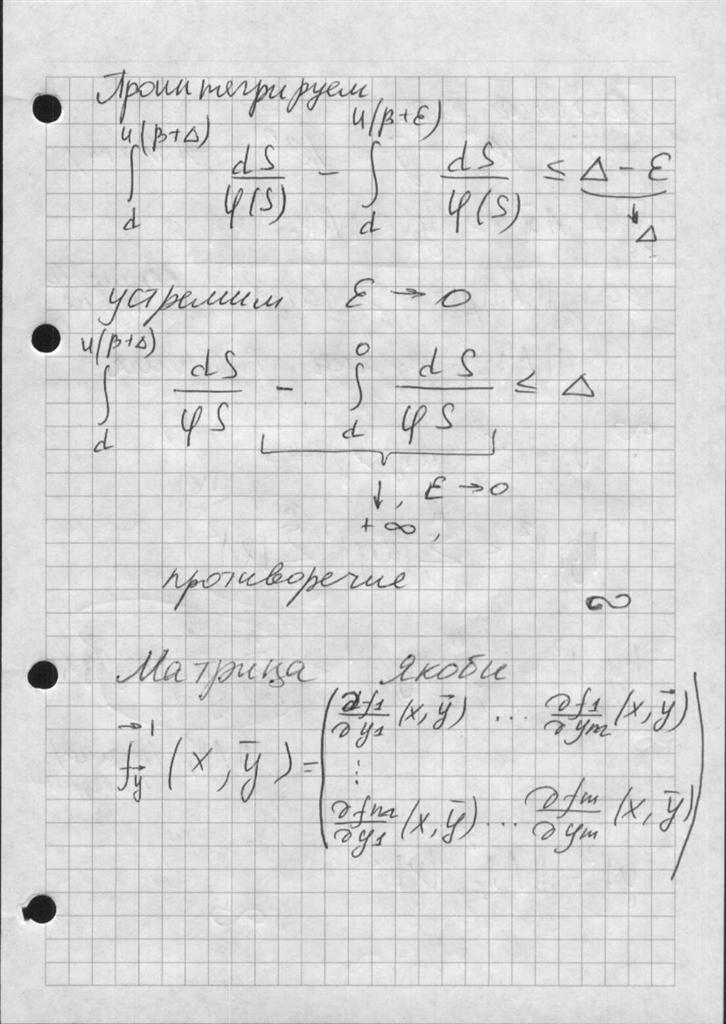 Проинтегрируем
∫_d^{u(β+Δ)} dS/φ(S) − ∫_d^{u(β+ε)} dS/φ(S) ≤ Δ − ε
↓
Δ
устремим ε → 0
∫_d^{u(β+Δ)} dS/φS − ∫_d^0 dS/φS ≤ Δ
↓, ε → 0
+∞,
противоречие
∞
Матрица Якоби
f⃗'_y⃗ (x, ȳ) = ( ∂f1/∂y1 (x, ȳ) ... ∂f1/∂ym (x, ȳ)
⋮
∂fm/∂y1 (x, ȳ) ... ∂fm/∂ym (x, ȳ) )